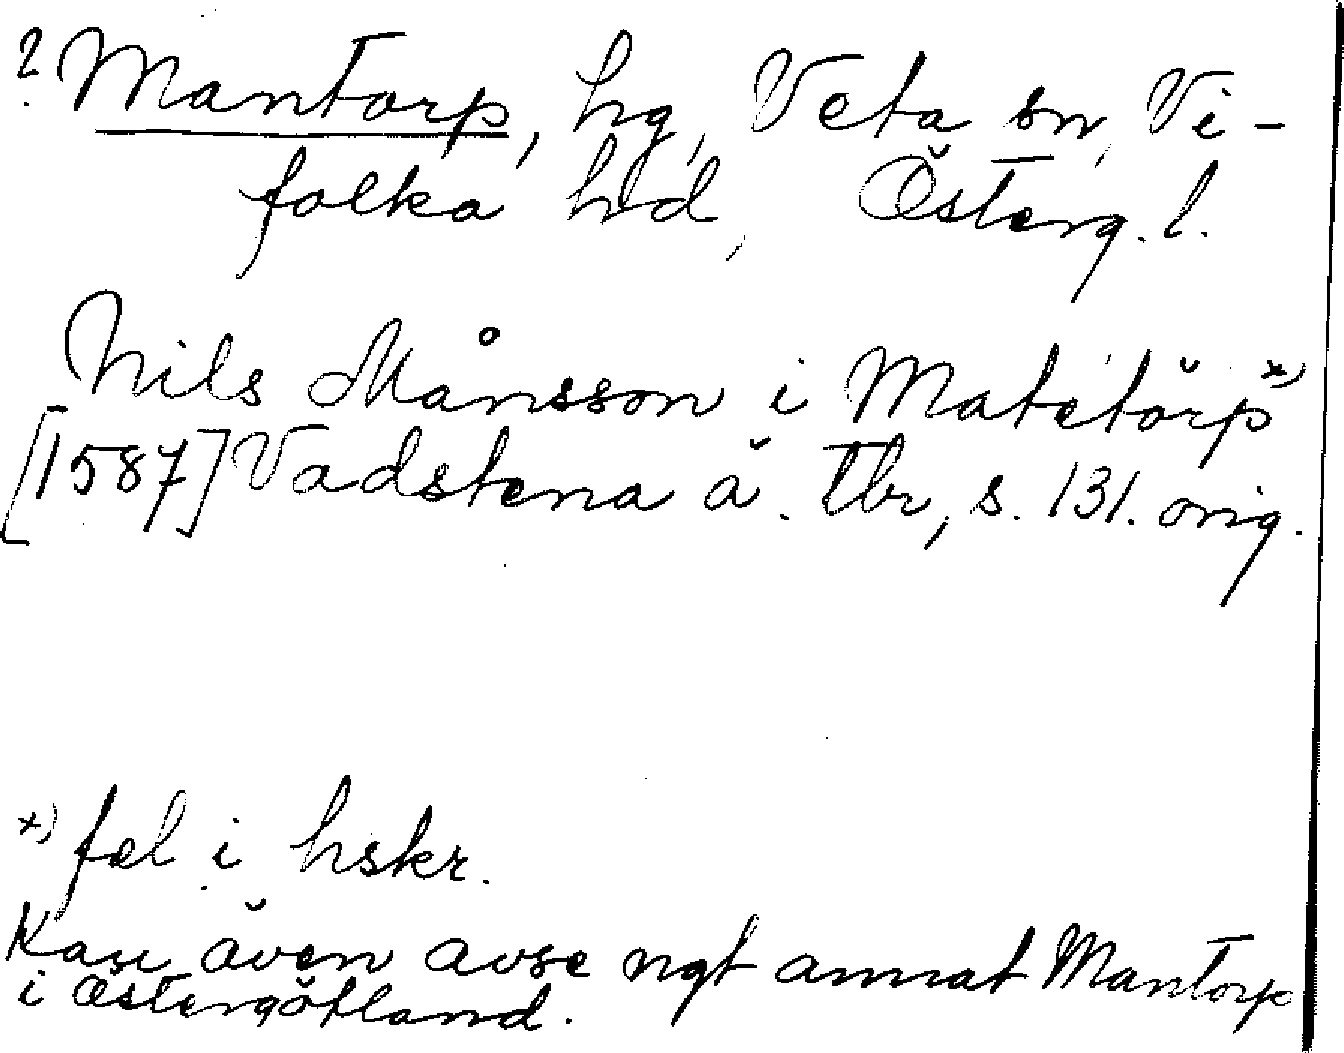 ? Mantorp, hg, Veta sn, Vi-
folka hd, Österg. l.
Nils Månsson i Matetörp x)
[1587] Vadstena ä. tbr, s. 131. orig.
x) fel i hskr.
Kan även avse ngt annat Mantorp
i Östergötland.